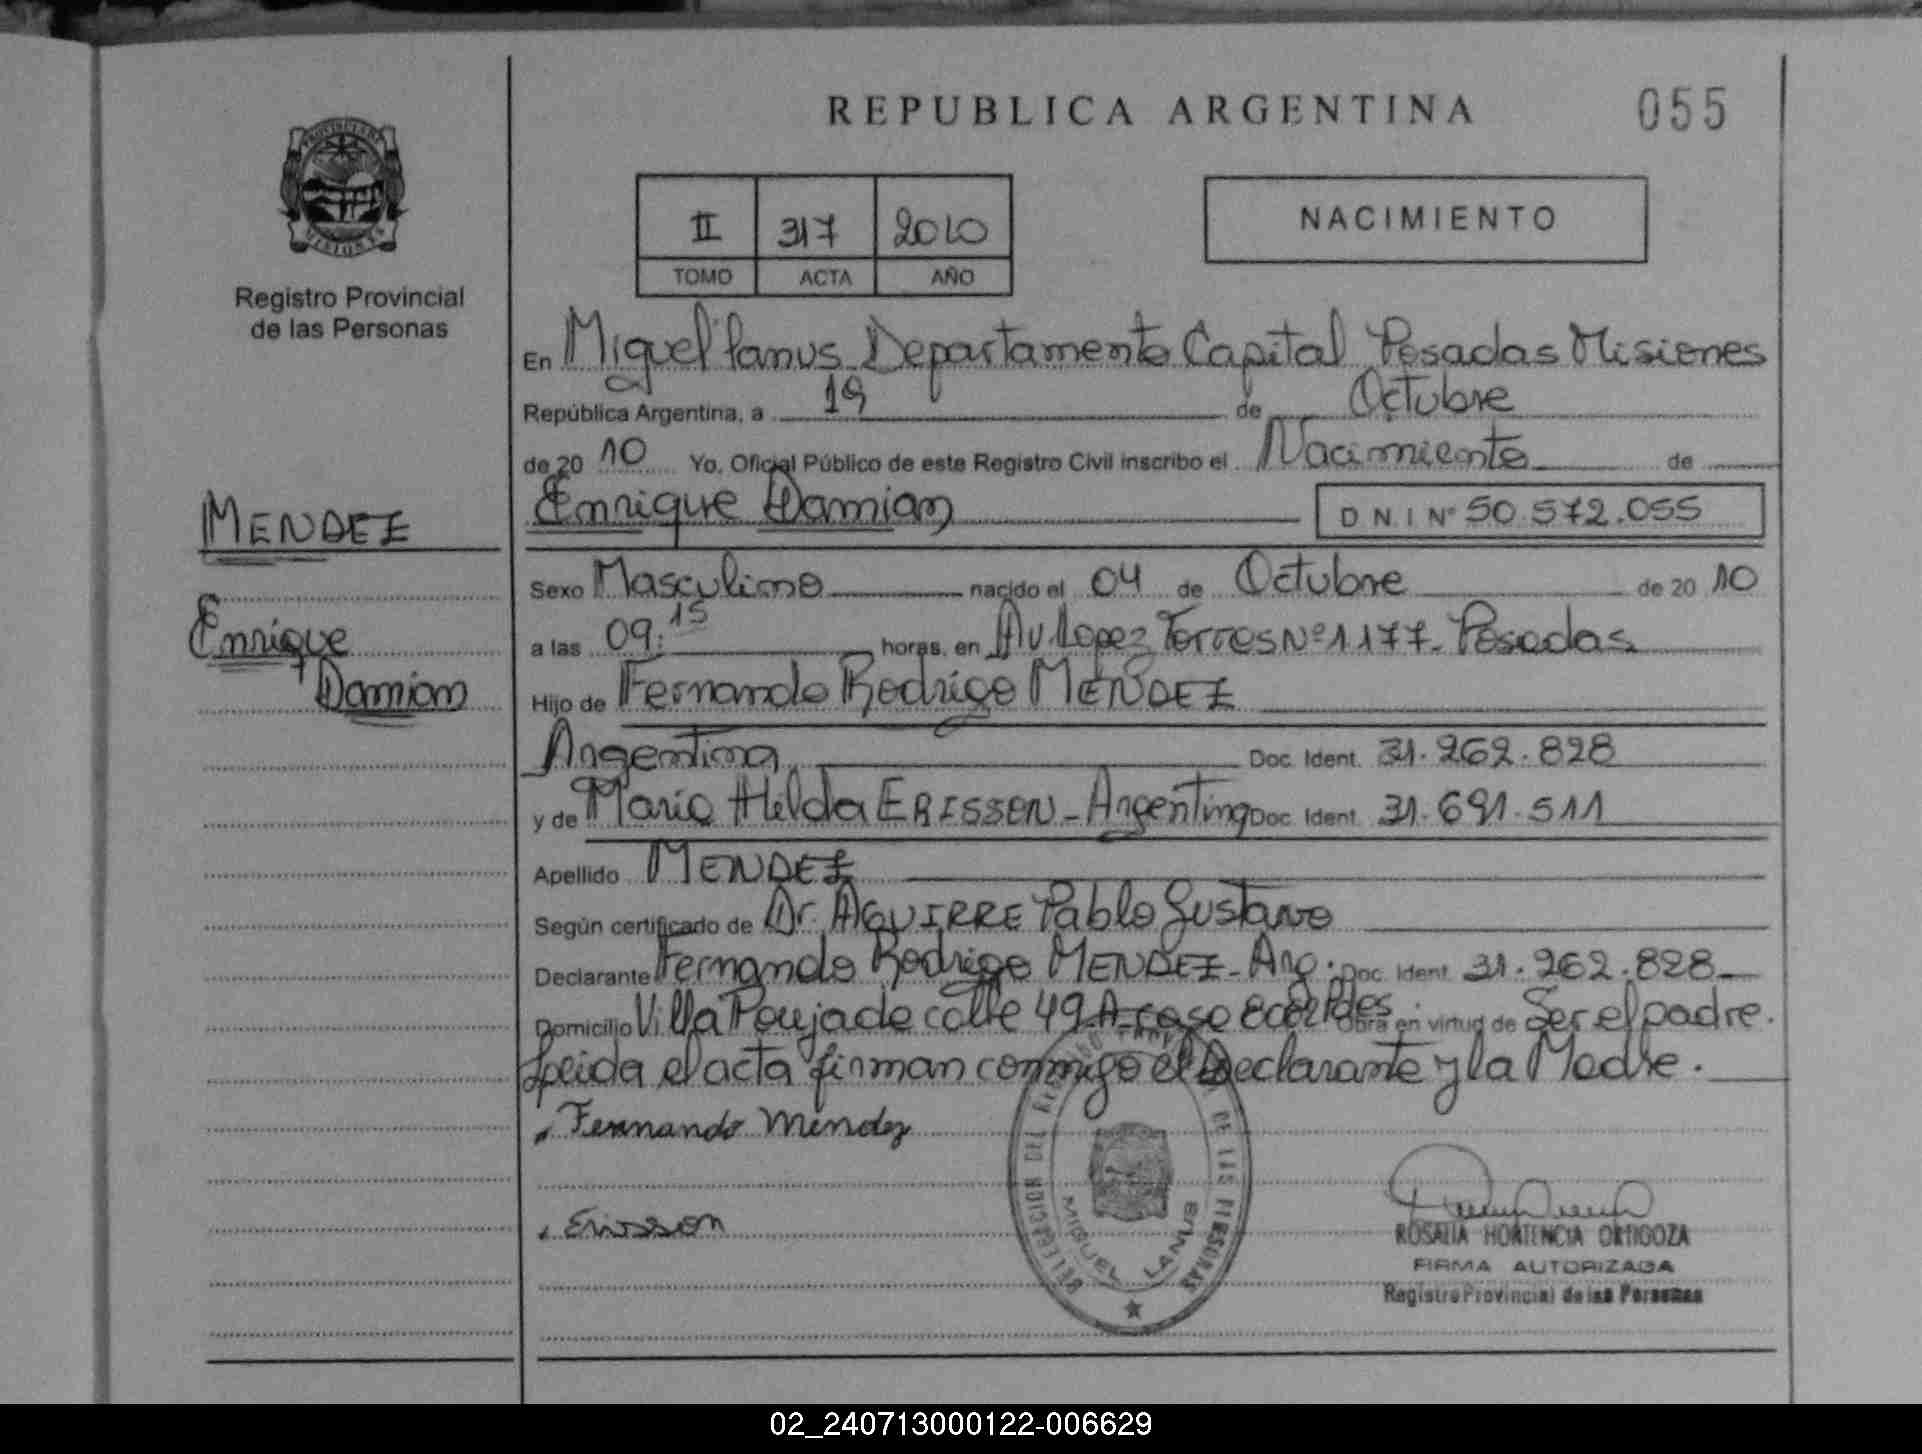 REPUBLICA ARGENTINA
055
PROVINCIA DE
MISIONES
Registro Provincial
de las Personas
II 317 2010
TOMO ACTA AÑO
NACIMIENTO
En Miguel Lanus Departamento Capital Posadas Misiones
República Argentina, a 19 de Octubre
de 20 10 Yo, Oficial Público de este Registro Civil inscribo el Nacimiento de
Enrique Damian D N I Nº 50.572.055
MENDEZ
Enrique
Damian
Sexo Masculino nacido el 04 de Octubre de 20 10
a las 09:15 horas, en Av. Lopez Torres Nº 1177- Posadas
Hijo de Fernando Rodrigo MENDEZ
Argentina Doc. Ident. 31.262.828
y de Maria Hilda ERISSON - Argentina Doc. Ident. 31.691.511
Apellido MENDEZ
Según certificado de Dr. AGUIRRE Pablo Gustavo
Declarante Fernando Rodrigo MENDEZ - Arg. Doc. Ident. 31.262.828
Domicilio Villa Poujade calle 49 A casa Obra en virtud de Ser el padre.
Leida el acta firman conmigo el Declarante y la Madre.
Fernando Mendez
Erisson
DELEGACION DEL REGISTRO PROVINCIAL DE LAS PERSONAS
MIGUEL LANUS
ROSALIA HORTENCIA ORTIGOZA
FIRMA AUTORIZADA
Registro Provincial de las Personas
02_240713000122-006629